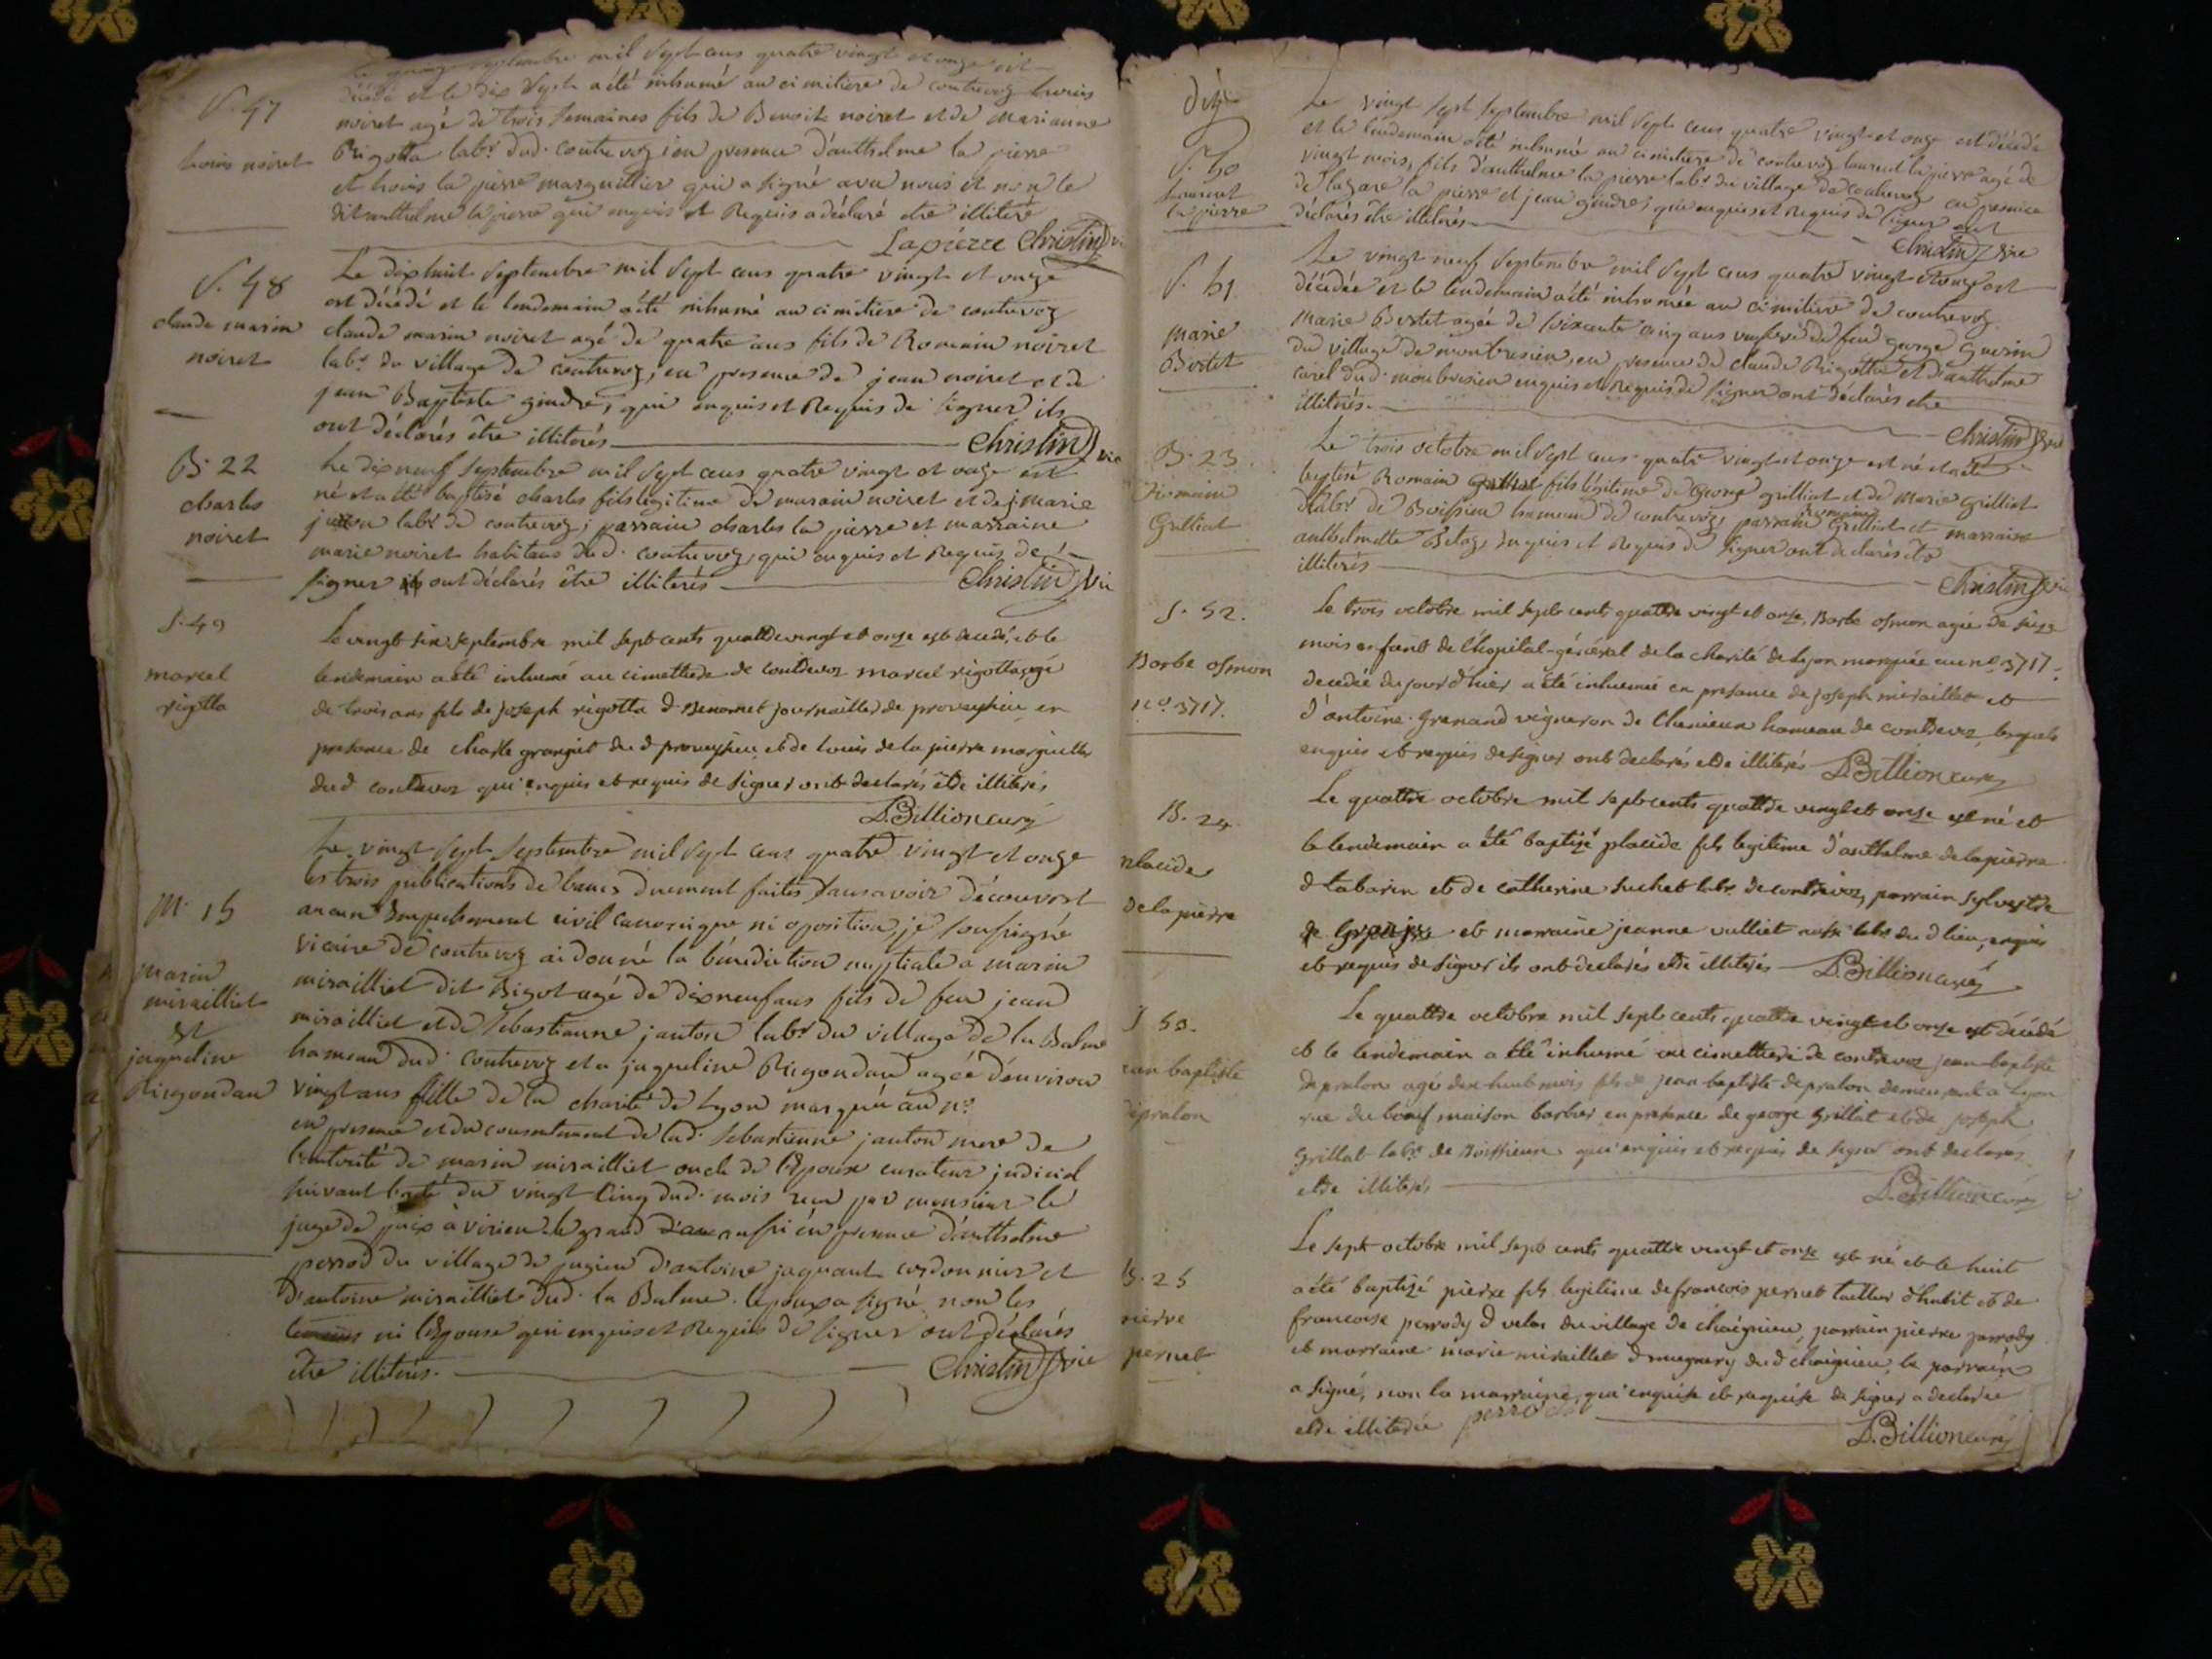 septembre mil sept cens quatre vingt et onze est
décédé et le dix sept a été inhumé au cimitiere de contrevoz louis
S. 47
noiret agé de trois semaines fils de Benoit noiret et de marianne
louis noiret
Rigotta labr dud. contrevoz, en presence d'anthelme la pierre
et louis la pierre marguillier qui a signé avec nous et non le
dit anthelme la pierre qui enquis et Requis a déclaré etre illiteré
Lapierre Christin vic
S. 48
claude marin
noiret
Le dixhuit Septembre mil Sept cens quatre vingt et onze
est décédé et le lendemain a été inhumé au cimitiere de contrevoz
claude marin noiret agé de quatre ans fils de Romain noiret
labr du village de contrevoz, en presence de jean noiret et de
jean Baptiste gindre, qui enquis et Requis de signer ils
ont déclarés être illiterés Christin vic
B. 22
charles
noiret
Le dixneuf Septembre mil Sept cens quatre vingt et onze est
né et a été baptisé charles fils legitime de marain noiret et de marie
labr de contrevoz; parrain charles la pierre et marraine
marie noiret habitans dud. contrevoz, qui enquis et Requis de
signer ont déclarés être illiterés Christin vic
S. 49
marcel
rigotta
Le vingt six septembre mil sept cents quattre vingt et onze est decedé, et le
lendemain a été inhumé au cimettiere de contrevoz marcel rigotta agé
de trois ans fils de joseph rigotta d Benonnet journaillier de proveysieu en
presence de charle granjet du d proveysieu et de louis de la pierre marguiller
dud contrevoz qui enquis et requis de signer ont declarés etre illiterés
D. Billion curé
M. 15
marin
mirailliet
et
jaqueline
Rigondau
Le vingt Sept Septembre mil Sept cens quatre vingt et onze
les trois publications de bancs duement faites sans avoir découvert
aucun Empechement civil canonique ni oposition, je soussigné
vicaire de contrevoz ai donné la bénédiction nuptiale a marin
mirailliet dit Bigot agé de dixneuf ans fils de feu jean
mirailliet et de Sebastianne janton labr du village de la Balme
hameau dud. contrevoz et a jaqueline Rigondau agée d'environ
vingt ans fille de la charité de Lyon marquée au no
en presence et du consentement de lad. Sebastienne janton mere de
l'autorité de marin mirailliet oncle de l'Epoux curateur judiciel
suivant l'acte du vingt cinq dud. mois reçu par monsieur le
juge de paix à virieu le grand aussi en presence d'anthelme
perrod du village de pugieu d'antoine jaquant cordonnier et
d'antoine mirailliet dud. la Balme. l'epoux a signé non les
temoins ni l'Epouse qui enquis et Requis de signer ont déclarés
être illiterés. Christin vic
dixe
S. 50
laurent
la pierre
Le vingt sept septembre mil sept cens quatre vingt et onze est décédé
et le lendemain a été inhumé au cimitiere de contrevoz laurent la pierre agé de
vingt mois, fils d'anthelme la pierre labr du village de contrevoz en presence
de lazare la pierre et jean gindre, qui enquis et Requis de signer ont
déclarés être illiterés
Christin vic
S. 51
marie
Bertet
Le vingt neuf Septembre mil Sept cens quatre vingt et onze est
décédée et le lendemain a été inhumée au cimitiere de contrevoz
marie Bertet agée de soixante cinq ans veuve de feu george guerin
du village de montbresieu, en presence de claude Rigotta et d'anthelme
carel dud. montbresieu enquis et Requis de signer ont déclarés etre
illiterés.
Christin vic
B. 23
Romain
Grilliat
Le trois octobre mil sept cens quatre vingt et onze est né et a été
baptisé Romain fils legitime de George grilliat et de Marie Grilliat
labr de Boissieu hameau de contrevoz, parrain Romain Grilliat et marraine
anthelmette Betaz, enquis et Requis de signer ont declarés etre
illiterés
Christin vic
S. 52.
Barbe osmon
no. 3717.
Le trois octobre mil sept cents quattre vingt et onze, Barbe osmon agée de seize
mois enfant de l'hopital-général de la charité de Lyon marquée au no 3717.
decedée du jour d'hier a été inhumée en presance de joseph miraillet et
d'antoine Grenand vigneron de Chenieux hameau de contrevoz, lesquels
enquis et requis de signer ont declarés etre illiterés D. Billion curé
B. 24.
placide
delapierre
Le quattre octobre mil sept cents quattre vingt et onze est né et
le lendemain a été baptisé placide fils legitime d'anthelme delapierre
d tabarin et de catherine suchet labr de contrevoz, parrain sylvestre
et marraine jeanne vulliet aussi labr du d lieu, enquis
et requis de signer ils ont declarés etre illiterés D. Billion curé
S 53.
jean baptiste
depralon
Le quattre octobre mil sept cents quattre vingt et onze est décédé
et le lendemain a été inhumé au cimettiere de contrevoz jean-baptiste
depralon agé dix huit mois fils de jean baptiste depralon demeurant a Lyon
rue du boeuf maison barbier en presence de george Grillat et de joseph
Grillat labr de Boissieux qui enquis et requis de signer ont declarés
etre illiterés
D. Billion curé
B. 25
pierre
pernet
Le sept octobre mil sept cents quattre vingt et onze est né et le huit
a été baptizé pierre fils legitime de francois pernet tailleur d'habit et de
francoise perrody d velas du village de cheignieu, parrain pierre perrody
et marraine marie miraillet d mugnery du d cheignieu, le parrain
a signé, non la marraine, qui enquise et requise de signer a declaré
etre illiterée perrodi
D. Billion curé